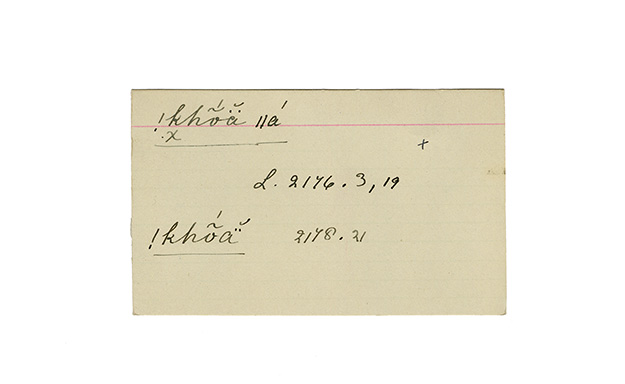 !khṍä̆ ǁá
x +
L. 2176. 3, 19
!khṍä̆ 2178. 21